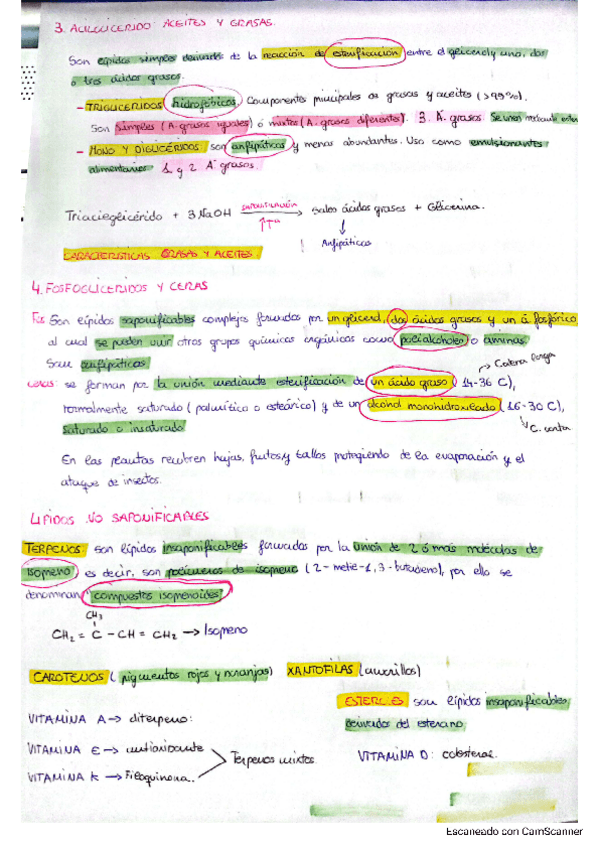 3. ACILGLICÉRIDO ACEITES Y GRASAS.
Son lípidos simples derivados de la reacción de esterificación entre el glicerol y uno, dos
o tres ácidos grasos.
- TRIGLICÉRIDOS hidrofóbicos. Componentes principales de grasas y aceites (>99%).
Son simples (A. grasos iguales) o mixtos (A. grasos diferentes). 3 A. grasos. Se une molécula
- MONO Y DIGLICÉRIDOS son anfipáticos y menos abundantes. Uso como emulsionantes
alimentarios 1 y 2 A. grasos.
Triacilglicérido + 3 NaOH saponificación → sales ácidos grasos + Glicerina.
↑Tª
↓
Anfipáticos
CARACTERISTICAS GRASAS Y ACEITES.
4. FOSFOGLICERIDOS Y CERAS
Fos Son lípidos saponificables complejos formados por un glicerol, dos ácidos grasos y un á. fosfórico
al cual se pueden unir otros grupos químicos orgánicos como polialcoholes o aminas.
Son anfipáticos.
→ Cadena larga
Ceras: se forman por la unión mediante esterificación de un ácido graso (14-36 C),
normalmente saturado (palmítico o esteárico) y de un alcohol monohidroxilado (16-30 C),
saturado o insaturado
↳ C. corta
En las plantas recubren hojas, frutos y tallos protegiendo de la evaporación y el
ataque de insectos.
LIPIDOS NO SAPONIFICABLES
TERPENOS son lípidos insaponificables formados por la unión de 2 ó más moléculas de
isopreno, es decir, son polímeros de isopreno (2-metil-1,3-butadieno), por ello se
denominan "compuestos isoprenoides"
CH₃
CH₂ = C - CH = CH₂ → Isopreno
CAROTENOS (pigmentos rojos y naranjas) XANTOFILAS (amarillos)
ESTEROLES son lípidos insaponificables
derivados del esterano
VITAMINA A → diterpeno:
VITAMINA E → antioxidante
Terpenos mixtos.
VITAMINA K → Filoquinona.
VITAMINA D:
Escaneado con CamScanner